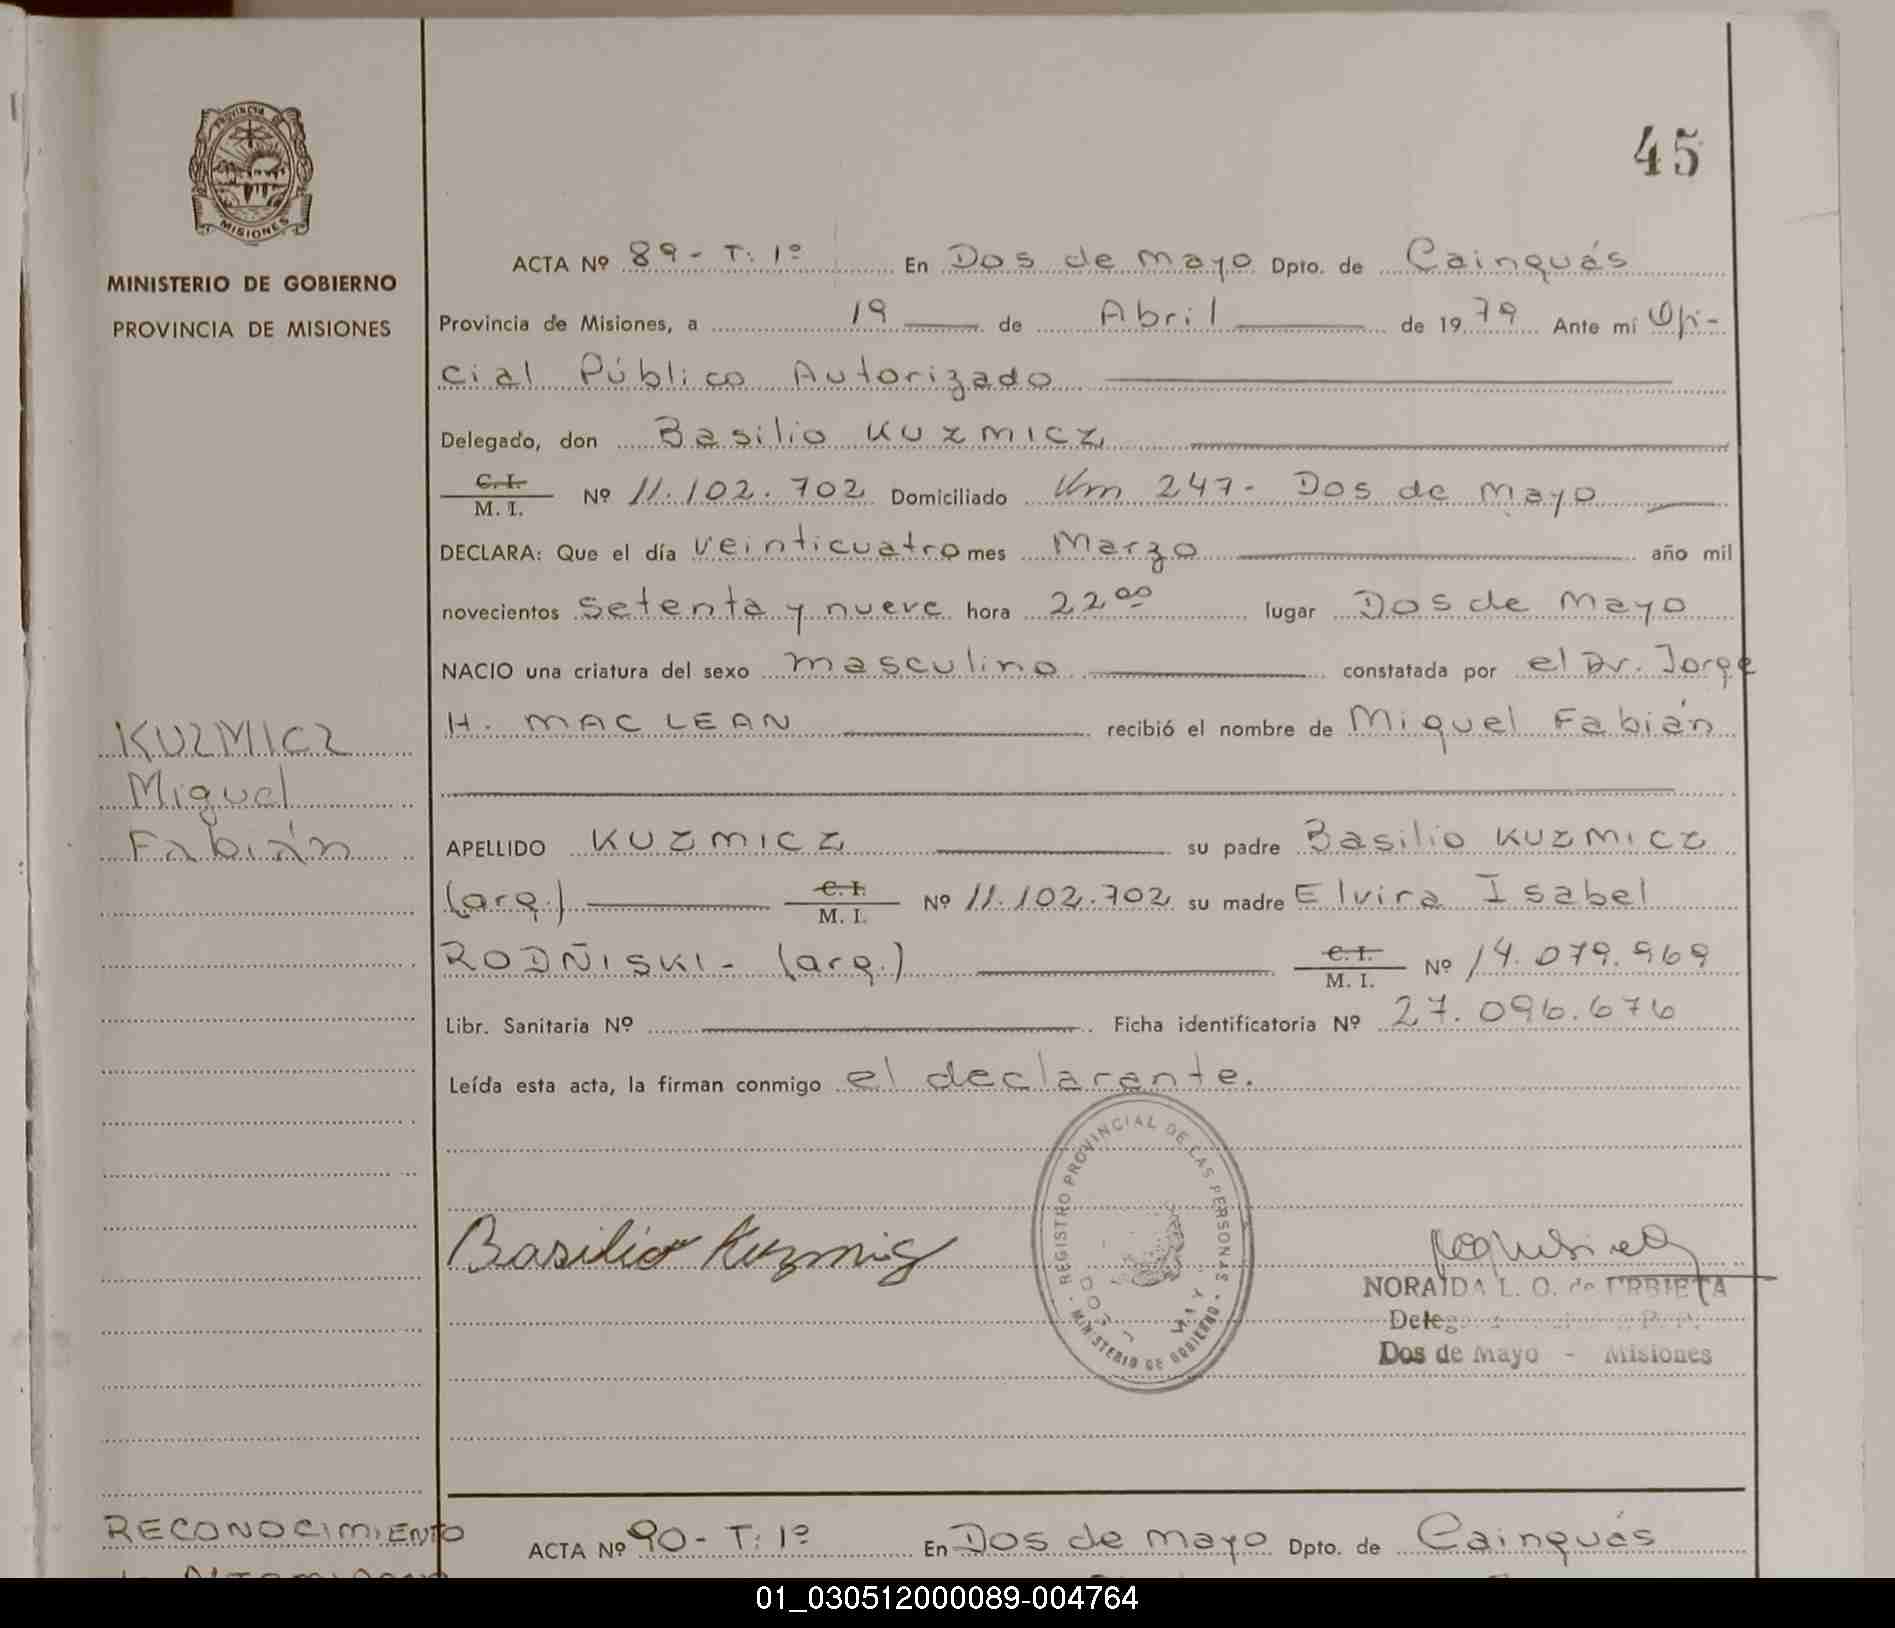 45
PROVINCIA DE
MISIONES
MINISTERIO DE GOBIERNO
PROVINCIA DE MISIONES
ACTA Nº 89 - T: 1º En Dos de Mayo Dpto. de Cainguás
Provincia de Misiones, a 19 de Abril de 1979 Ante mí Ofi-
cial Público Autorizado
Delegado, don Basilio KUZMICZ
C. I.
M. I. Nº 11.102.702 Domiciliado Km 247- Dos de Mayo
DECLARA: Que el día veinticuatro mes Marzo año mil
novecientos setenta y nueve hora 22 00 lugar Dos de Mayo
NACIO una criatura del sexo masculino constatada por el Dr. Jorge
H. MAC LEAN recibió el nombre de Miguel Fabián
KUZMICZ
Miguel
Fabián
APELLIDO KUZMICZ su padre Basilio KUZMICZ
(arg.) C. I.
M. I. Nº 11.102.702 su madre Elvira Isabel
RODÑISKI - (arg.) C. I.
M. I. Nº 14.079.969
Libr. Sanitaria Nº Ficha identificatoria Nº 27.096.676
Leída esta acta, la firman conmigo el declarante.
REGISTRO PROVINCIAL DE LAS PERSONAS
MINISTERIO DE GOBIERNO
Basilio Kuzmicz
NORAIDA L. O. de URBIETA
Dos de Mayo - Misiones
RECONOCIMIENTO
ACTA Nº 90 - T: 1º En Dos de Mayo Dpto. de Cainguás
01_030512000089-004764